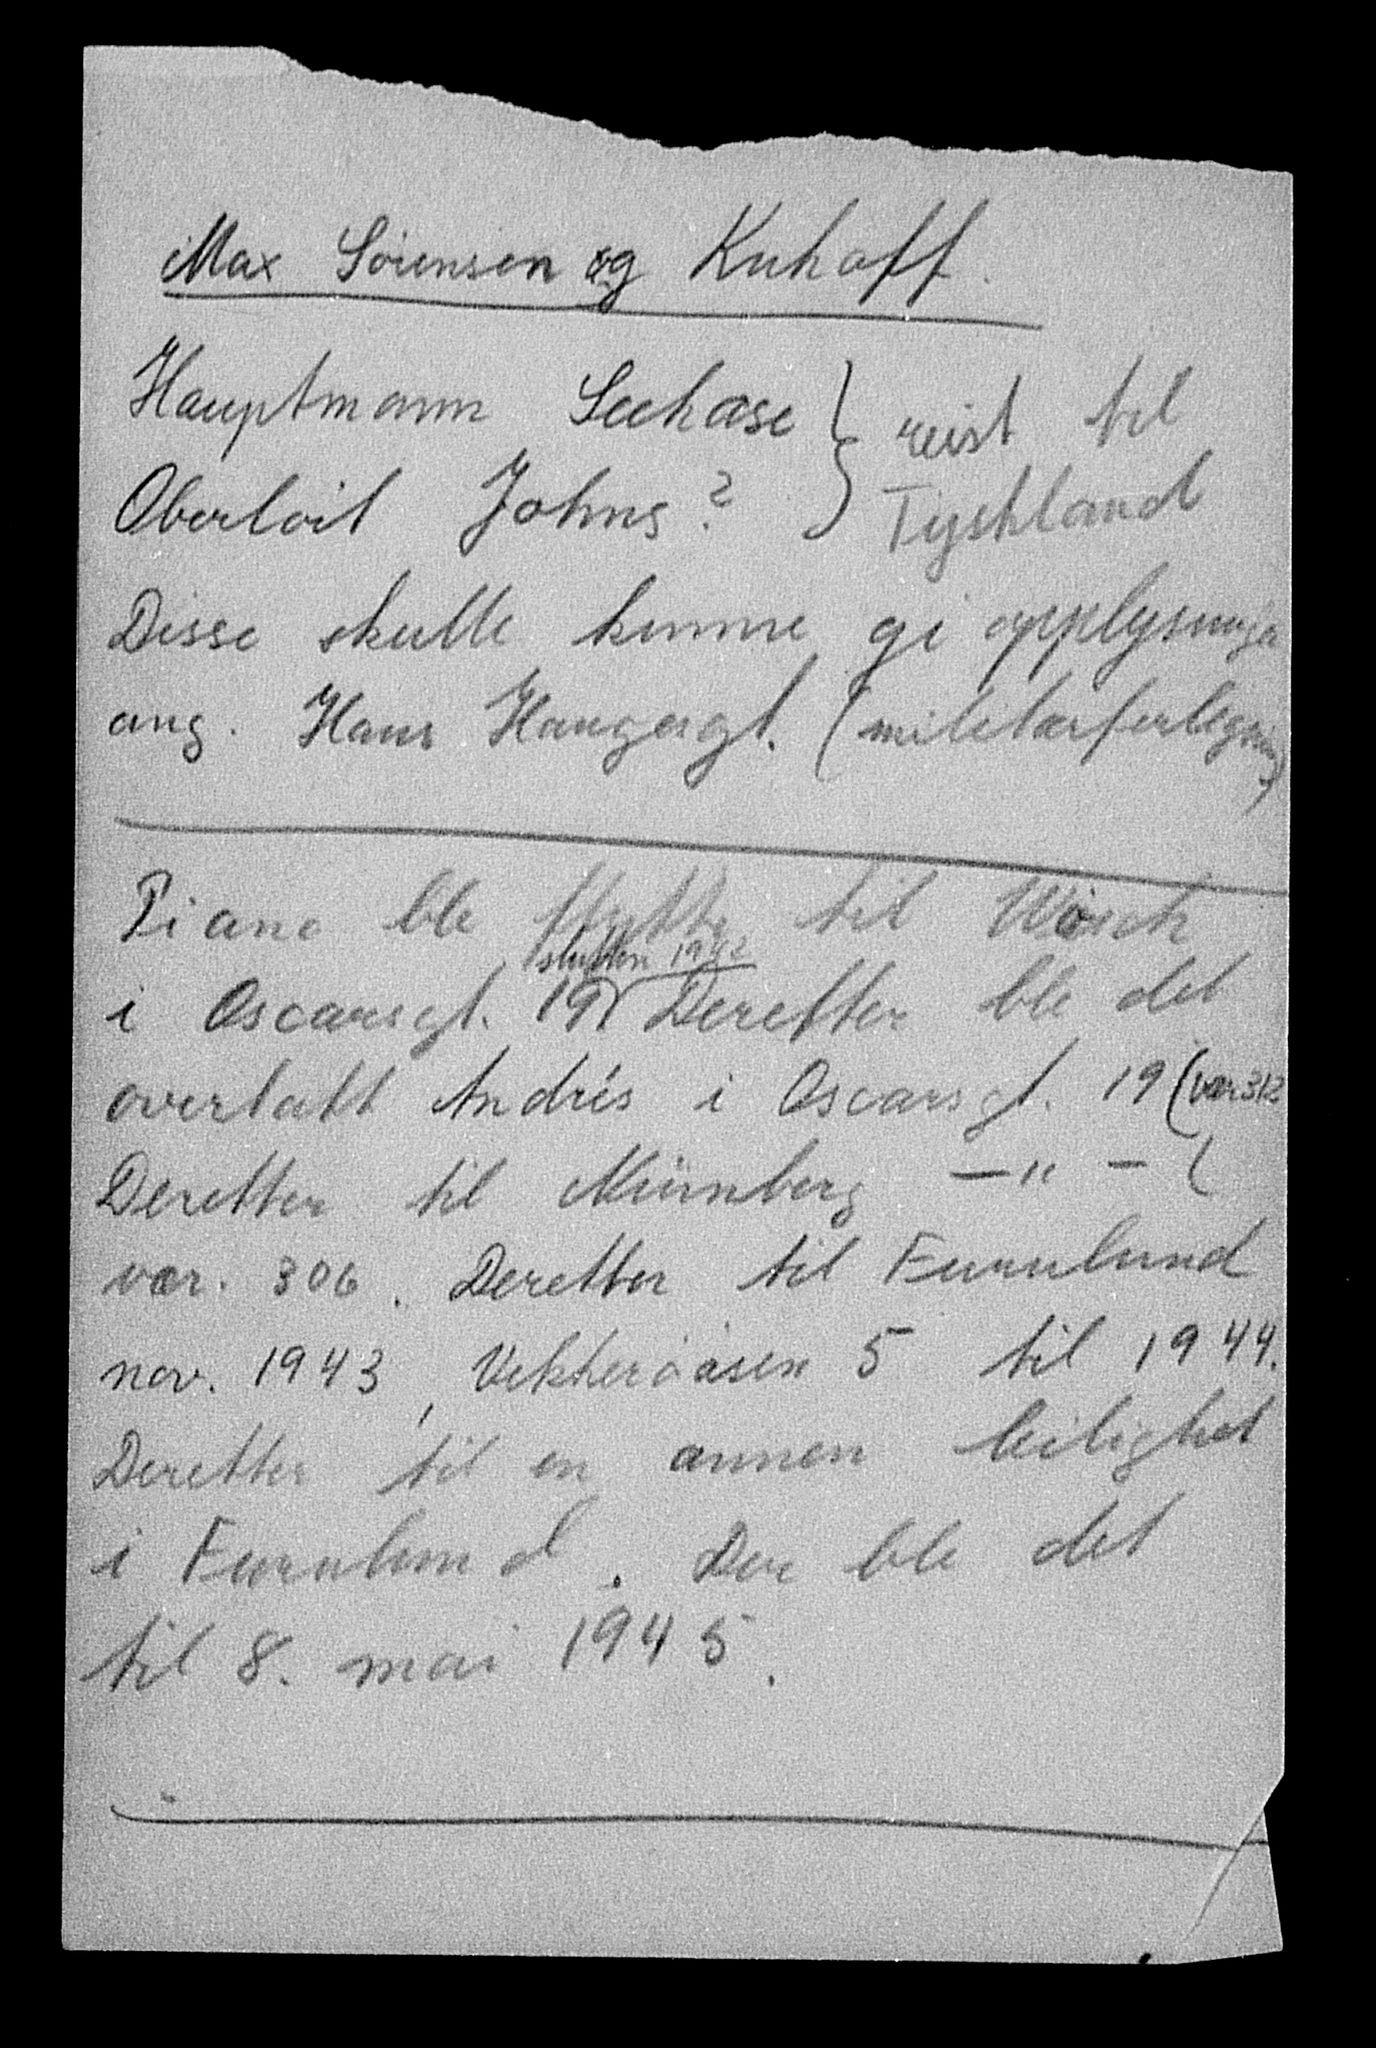 Max Sörensen og Kuhoff.
Hauptmann Seehase } reist til
Oberloit Johns? } Tyskland
Disse skulle kunne gi opplysninger
ang. Hans Haugesgt. (militærforlegning)
Piano ble flyttet til Wösch
slutten 1942
i Oscarsgt. 19 Deretter ble det
overlatt Andrés i Oscarsgt. 19 (vær 312
Deretter til Nürnberg —"— (
vær. 306. Deretter til Furulund
nov. 1943, Vækkeröåsen 5 til 1944.
Deretter til en annen leilighet
i Furulund. Der ble det
til 8. mai 1945.